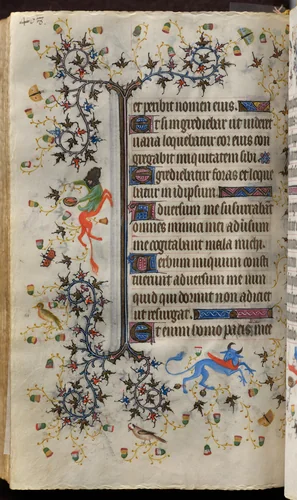 et peribit nomen eius.
Et si ingrediebar ut videret
vana loquebatur cor eius con
gregabit iniquitatem sibi.
Egrediebatur foras et loque
batur in idipsum.
Adversum me susurrabat
omnes inimici mei adversum
me cogitabant mala michi.
Verbum iniquum consti
tuerunt adversum me nun
quid qui dormit non adiciet
ut resurgat.
Et enim homo pacis mee